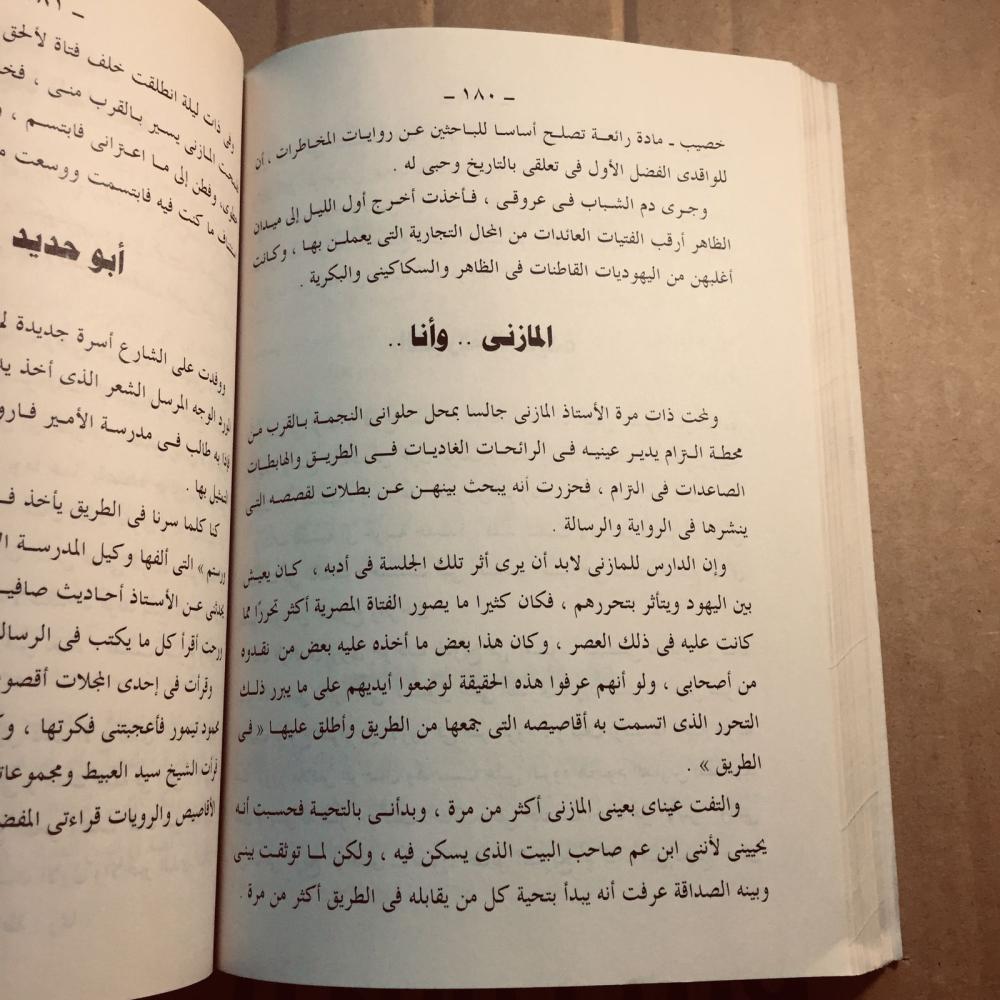 - ١٨٠ -
خصيب - مادة رائعة تصلح أساسا للباحثين عن روايات المخاطرات ، أن
للواقدى الفضل الأول فى تعلقى بالتاريخ وحبى له .
وجرى دم الشباب فى عروقى ، فأخذت أخرج أول الليل إلى ميدان
الظاهر أرقب الفتيات العائدات من المحال التجارية التى يعملن بها ، وكانت
أغلبهن من اليهوديات القاطنات فى الظاهر والسكاكينى والبكرية .
المازنى .. وأنا ..
ولمحت ذات مرة الأستاذ المازنى جالسا بمحل حلوانى النجمة بالقرب من
محطة الترام يدير عينيه فى الرائحات الغاديات فى الطريق والهابطات
الصاعدات فى الترام ، فحزرت أنه يبحث بينهن عن بطلات لقصصه التى
ينشرها فى الرواية والرسالة .
وإن الدارس للمازنى لابد أن يرى أثر تلك الجلسة فى أدبه ، كان يعيش
بين اليهود ويتأثر بتحررهم ، فكان كثيرا ما يصور الفتاة المصرية أكثر تحررًا مما
كانت عليه فى ذلك العصر ، وكان هذا بعض ما أخذه عليه بعض من نقدوه
من أصحابى ، ولو أنهم عرفوا هذه الحقيقة لوضعوا أيديهم على ما يبرر ذلك
التحرر الذى اتسمت به أقاصيصه التى جمعها من الطريق وأطلق عليها « فى
الطريق » .
والتفت عيناى بعينى المازنى أكثر من مرة ، وبدأنى بالتحية فحسبت أنه
يحيينى لأننى ابن عم صاحب البيت الذى يسكن فيه ، ولكن لما توثقت بينى
وبينه الصداقة عرفت أنه يبدأ بتحية كل من يقابله فى الطريق أكثر من مرة .
- ١٨١
وفى ذات ليلة انطلقت خلف فتاة لألحق
المازنى يسير بالقرب منى ،
وفطن إلى ما اعترانى فابتسم ،
ما كنت فيه فابتسمت ووسعت
أبو حديد
ووفدت على الشارع أسرة جديدة
الوجه المرسل الشعر الذى أخذ
به طالب فى مدرسة الأمير
بها .
كنا كلما سرنا فى الطريق يأخذ
» التى ألفها وكيل المدرسة
عن الأستاذ أحاديث
ورحت أقرأ كل ما يكتب فى
وقرأت فى إحدى المجلات
تيمور فأعجبتنى فكرتها ،
قرأت الشيخ سيد العبيط
الأقاصيص والرويات قراءتى